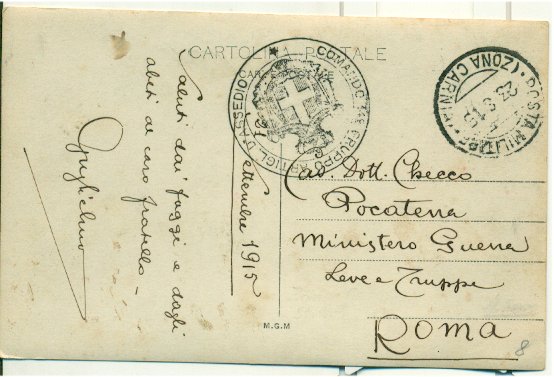 CARTOLINA POSTALE
Saluti dai faggi e dagli
abeti al caro fratello -
Guglielmo
settembre 1915
COMANDO GRUPPO ARTIGL. D'ASSEDIO
POSTA MILITARE
(ZONA CARNIA)
Cav. Dott. Checco
Pocaterra
Ministero Guerra
Leve e Truppe
Roma
M.G.M
8